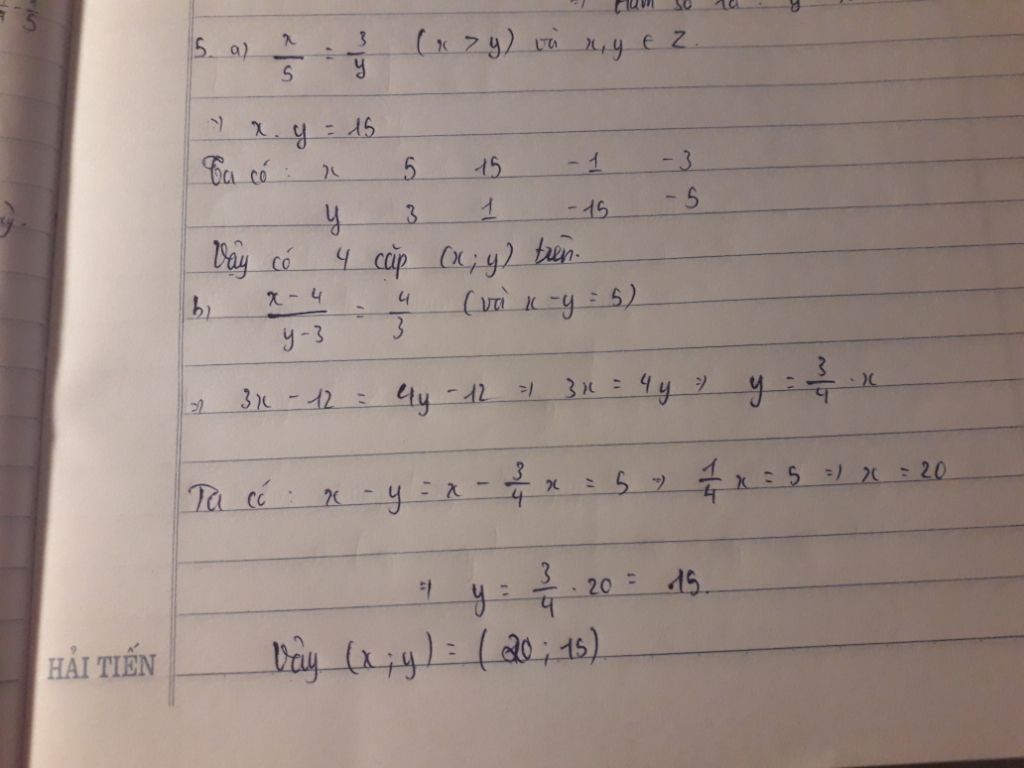 5. a) x/5 = 3/y (x > y) và x, y ∈ Z.
=> x. y = 15
Ta có: x 5 15 -1 -3
y 3 1 -15 -5
Vậy có 4 cặp (x; y) trên.
b) x-4/y-3 = 4/3 (và x - y = 5)
=> 3x - 12 = 4y - 12 => 3x = 4y => y = 3/4 . x
Ta có: x - y = x - 3/4 x = 5 => 1/4 x = 5 => x = 20
=> y = 3/4 . 20 = 15.
Vậy (x; y) = (20; 15)
HẢI TIẾN